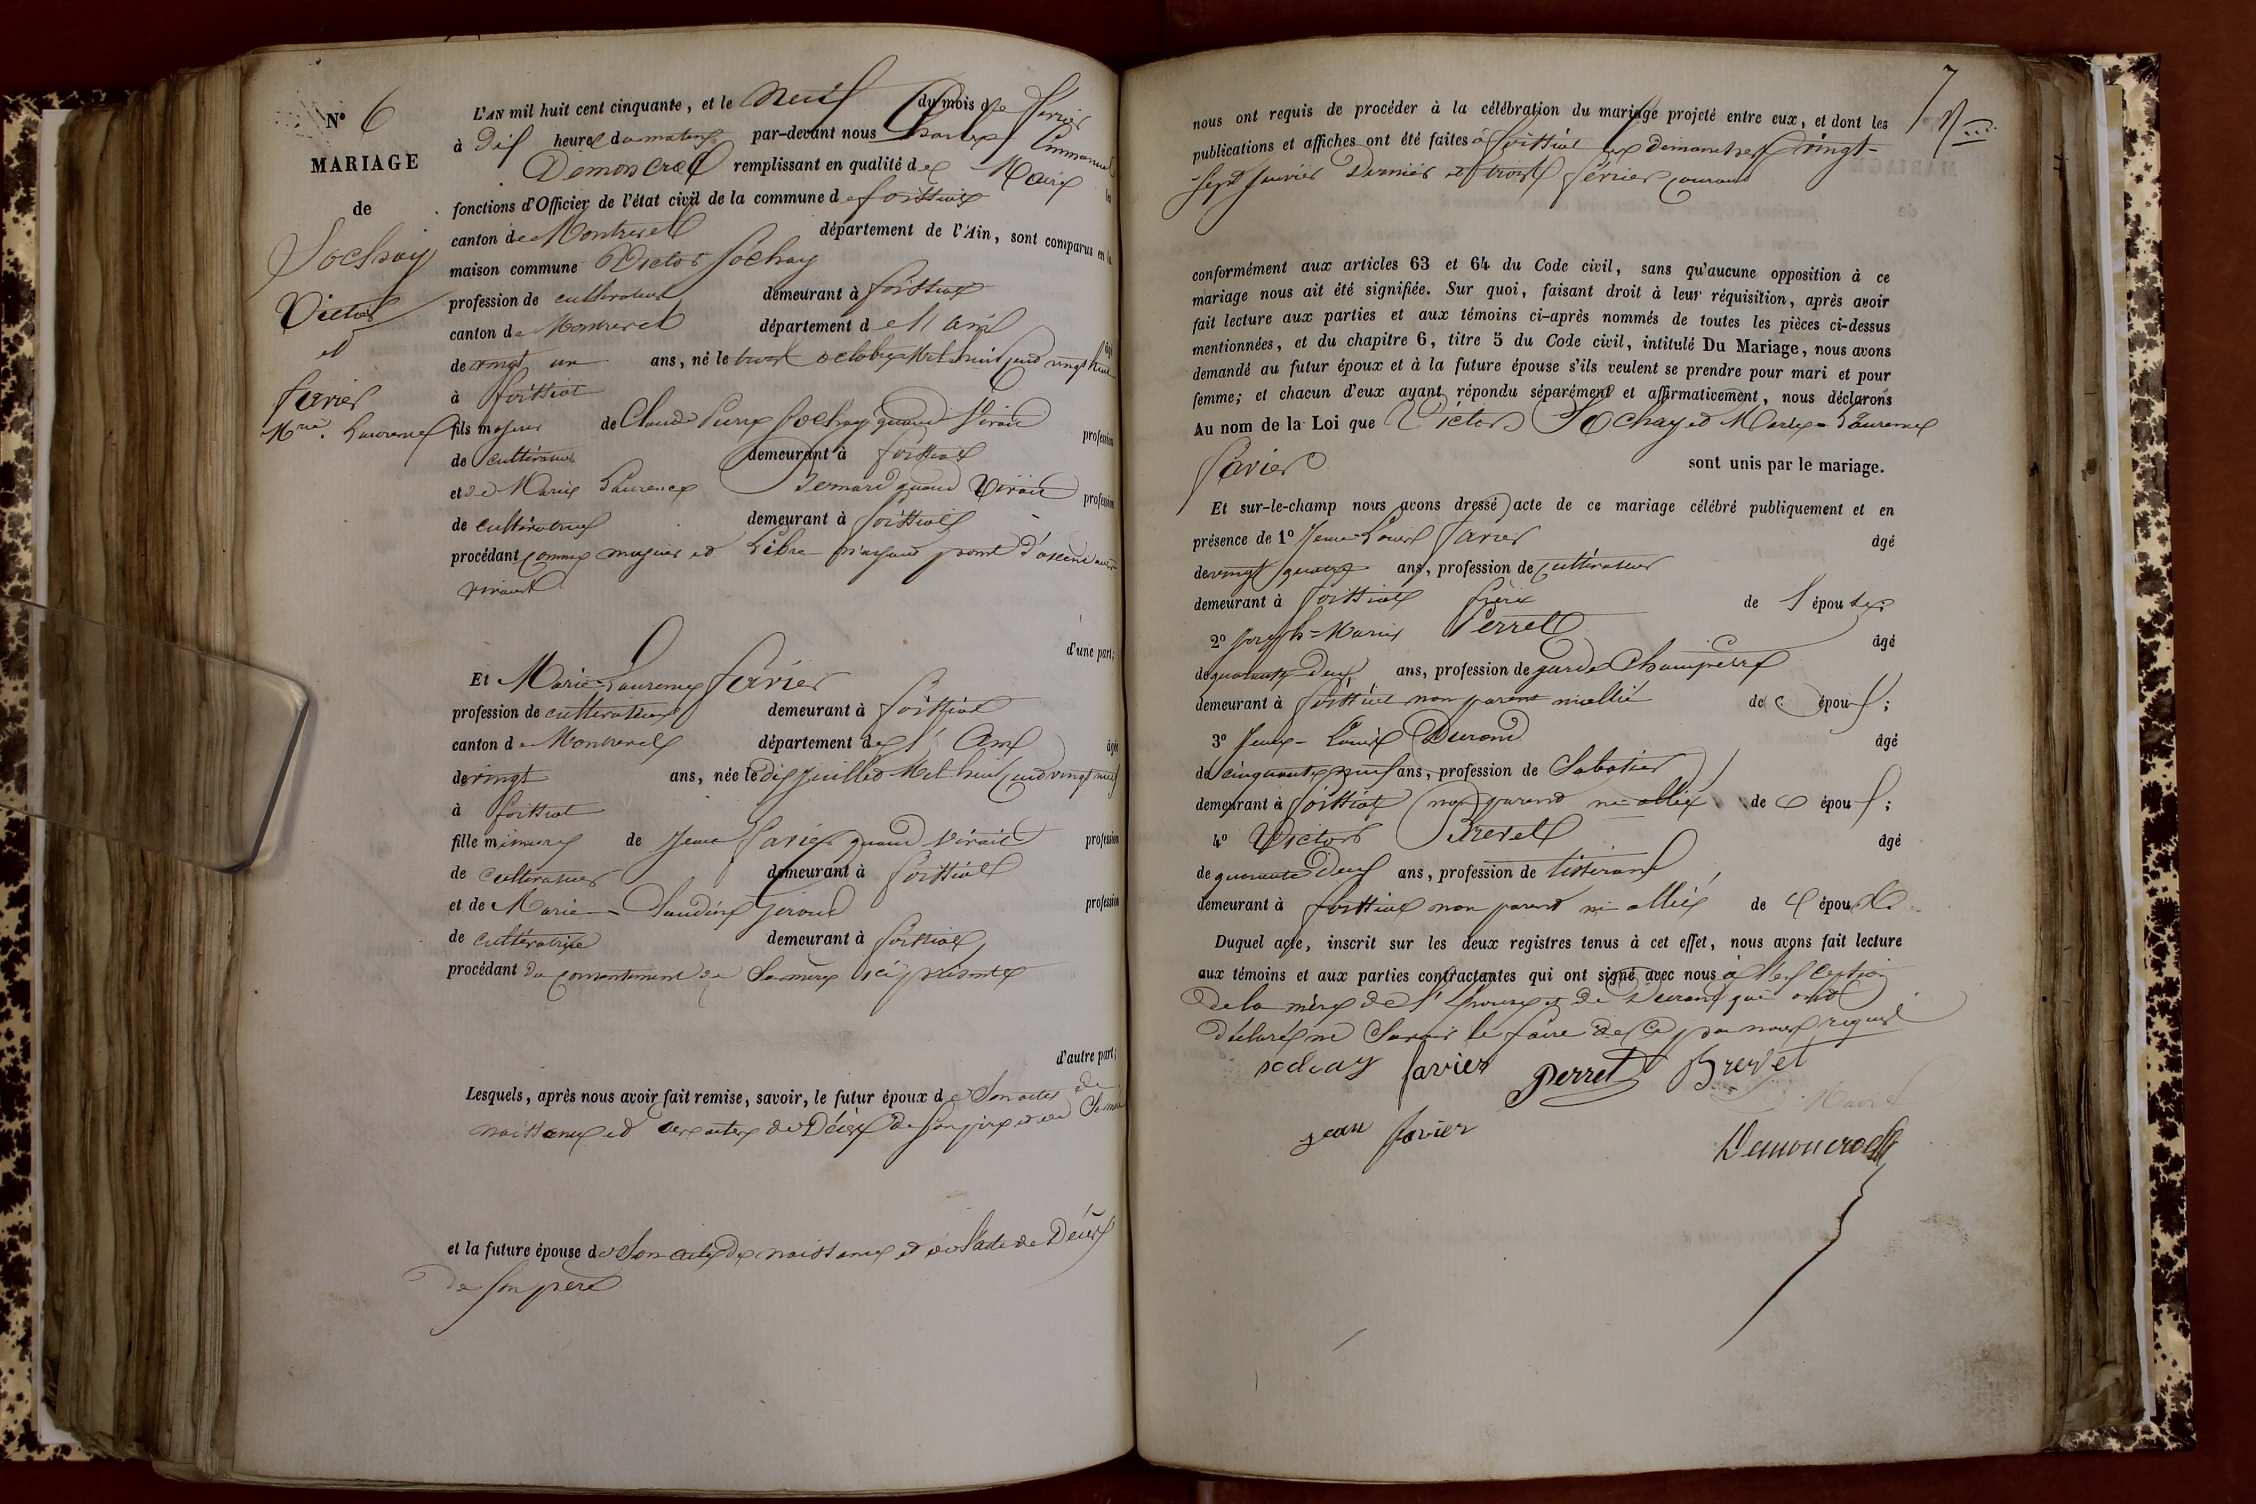 N° 6
MARIAGE
de
Sochay
Victor
et
Favier
Mie. Laurence
L'AN mil huit cent cinquante, et le neuf du mois de février
à dix heures du matin par-devant nous Charles Emmanuel
Demoncrod remplissant en qualité de Maire les
fonctions d'Officier de l'état civil de la commune de foissiat
canton de Montrevel département de l'Ain, sont comparus en la
maison commune Victor Sochay
profession de cultivateur demeurant à foissiat
canton de Montrevel département de l'ain âgé
de vingt un ans, né le trois octobre Mil huit cent vingt huit
à foissiat
fils majeur de Claude Pierre Sochay quand vivait profession
de cultivateur demeurant à foissiat
et de Marie Laurence Bernard quand vivait profession
de cultivatrice demeurant à foissiat
procédant comme majeur et libre n'ayant point d'ascendants
vivants
d'une part;
Et Marie-Laurence favier
profession de cultivatrice demeurant à foissiat
canton de Montrevel département de l'Ain âgée
de vingt ans, née le dix juillet Mil huit cent vingt neuf
à foissiat
fille mineure de Jean favier quand vivait profession
de cultivateur demeurant à foissiat
et de Marie-Claudine Giroud profession
de cultivatrice demeurant à foissiat
procédant du consentement de Sa mère ici présente
d'autre part;
Lesquels, après nous avoir fait remise, savoir, le futur époux de Son acte de
naissance et des actes de Décès de Son père et de Sa mère
et la future épouse de Son acte de naissance et de l'acte de Décès
de Son père
7
nous ont requis de procéder à la célébration du mariage projeté entre eux, et dont les
publications et affiches ont été faites à foissiat les dimanches vingt-
sept janvier Dernier et trois février courant
conformément aux articles 63 et 64 du Code civil, sans qu'aucune opposition à ce
mariage nous ait été signifiée. Sur quoi, faisant droit à leur réquisition, après avoir
fait lecture aux parties et aux témoins ci-après nommés de toutes les pièces ci-dessus
mentionnées, et du chapitre 6, titre 5 du Code civil, intitulé Du Mariage, nous avons
demandé au futur époux et à la future épouse s'ils veulent se prendre pour mari et pour
femme; et chacun d'eux ayant répondu séparément et affirmativement, nous déclarons
Au nom de la Loi que Victor Sochay et Marie-Laurence
favier sont unis par le mariage.
Et sur-le-champ nous avons dressé acte de ce mariage célébré publiquement et en
présence de 1° Jean-Louis favier âgé
de vingt quatre ans, profession de cultivateur
demeurant à foissiat frère de l'épouse;
2° Joseph-Marie Perret âgé
de quarante deux ans, profession de garde Champêtre
demeurant à foissiat non parent ni allié des époux;
3° Jean-Louis Durand âgé
de cinquante neuf ans, profession de Sabotier
demeurant à foissiat non parent ni allié des époux;
4° Victor Brevet âgé
de quarante deux ans, profession de tisserand
demeurant à foissiat non parent ni allié des époux.
Duquel acte, inscrit sur les deux registres tenus à cet effet, nous avons fait lecture
aux témoins et aux parties contractantes qui ont signé avec nous à l'exception
de la mère de l'épouse et de Durand qui ont
déclaré ne Savoir le faire de ce par nous requis
sochay favier Perret Brevet
jean favier